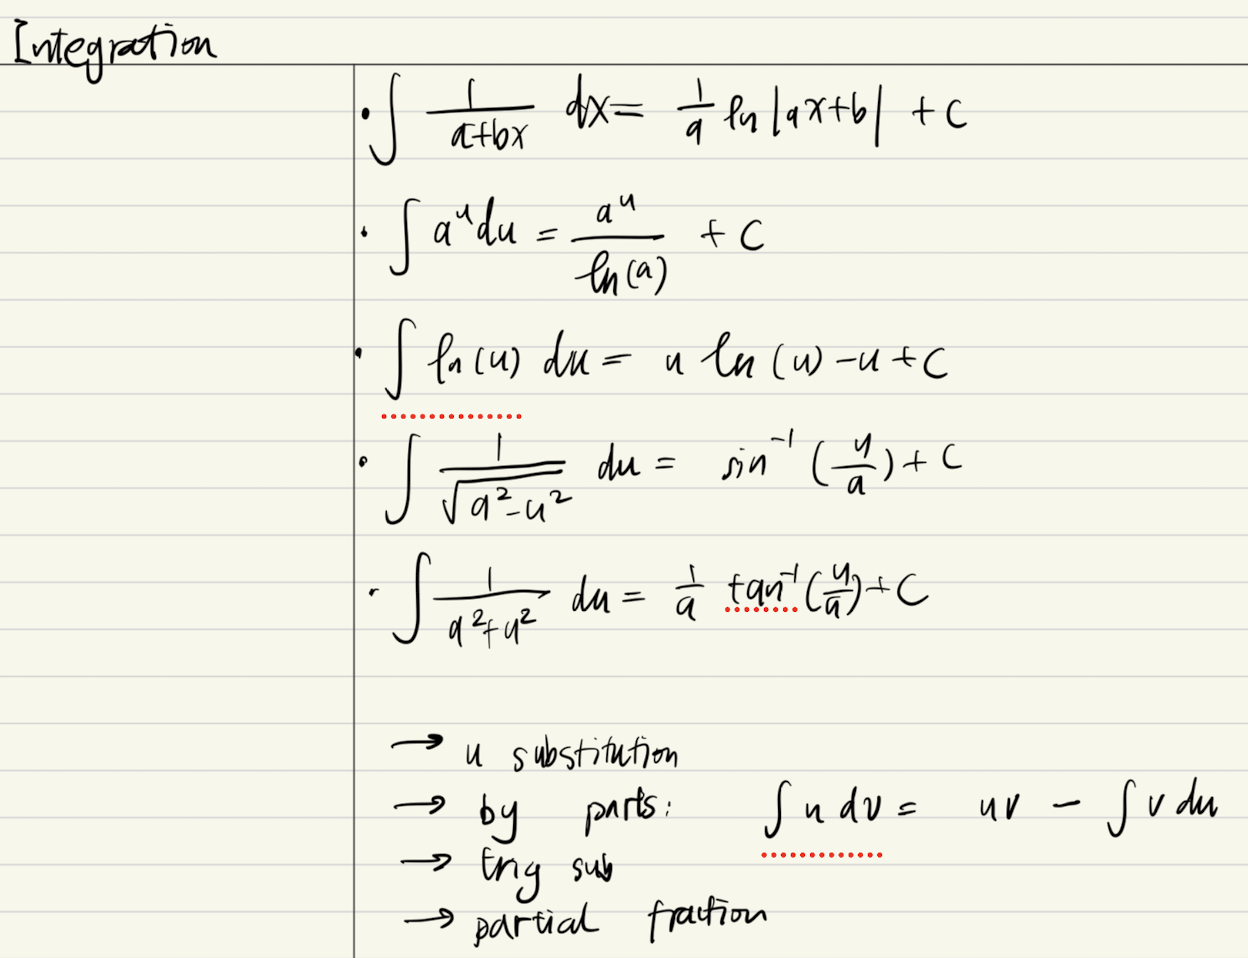 Integration
• ∫ 1/(a+bx) dx = 1/a ln |ax+b| + C
• ∫ a^u du = a^u/ln(a) + C
• ∫ ln(u) du = u ln(u) - u + C
• ∫ 1/√(a²-u²) du = sin⁻¹(u/a) + C
• ∫ 1/(a²+u²) du = 1/a tan⁻¹(u/a) + C
→ u substitution
→ by parts: ∫ u dv = uv - ∫ v du
→ trig sub
→ partial fraction